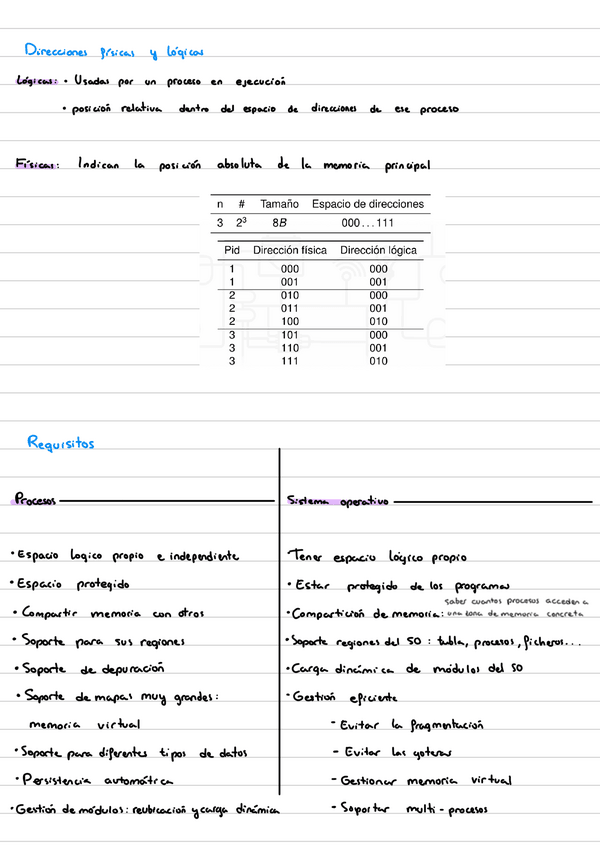 Direcciones físicas y lógicas
Lógicas: • Usadas por un proceso en ejecución
• posición relativa dentro del espacio de direcciones de ese proceso
Físicas: Indican la posición absoluta de la memoria principal
n # Tamaño Espacio de direcciones
3 2³ 8B 000...111
Pid Dirección física Dirección lógica
1 000 000
1 001 001
2 010 000
2 011 001
2 100 010
3 101 000
3 110 001
3 111 010
Requisitos
Procesos
• Espacio logico propio e independiente
• Espacio protegido
• Compartir memoria con otros
• Soporte para sus regiones
• Soporte de depuración
• Soporte de mapas muy grandes:
memoria virtual
• Soporte para diferentes tipos de datos
• Persistencia automática
• Gestión de módulos: reubicación y carga dinámica
Sistema operativo
Tener espacio lógico propio
• Estar protegido de los programas
saber cuantos procesos acceden a
• Compartición de memoria: una zona de memoria concreta
• Soporte regiones del SO: tabla, procesos, ficheros...
• Carga dinámica de módulos del SO
• Gestión eficiente
- Evitar la fragmentación
- Evitar las goteras
- Gestionar memoria virtual
- Soportar multi-procesos